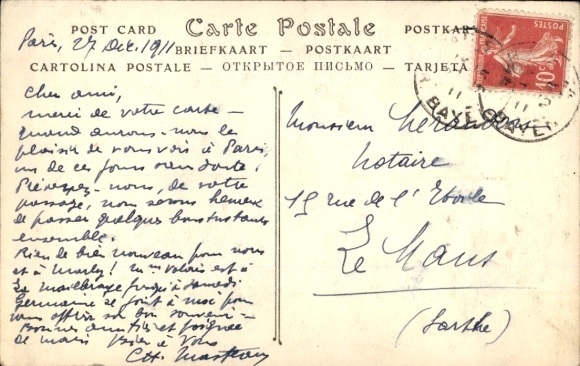 POST CARD Carte Postale POSTKARTE
BRIEFKAART — POSTKAART
CARTOLINA POSTALE — ОТКРЫТОЕ ПИСЬМО — TARJETA
Paris, 27 Dec. 1911
Cher ami,
merci de votre carte —
Quand aurons-nous le
plaisir de vous voir à Paris,
un de ces jours sans doute ?
Prévenez-nous, de votre
passage, nous serons heureux
de passer quelques bons instants
ensemble.
Rien de bien nouveau pour nous
et à Marly ! Mme Valois est à
La jusqu'à Samedi
Germaine se joint à moi pour
vous offrir son bon souvenir —
Bonnes amitiés et poignée
de mains Bien à Vous
Ch.
Monsieur
Notaire
15 rue de l'Etoile
Le Mans
(Sarthe)
POSTES
10c